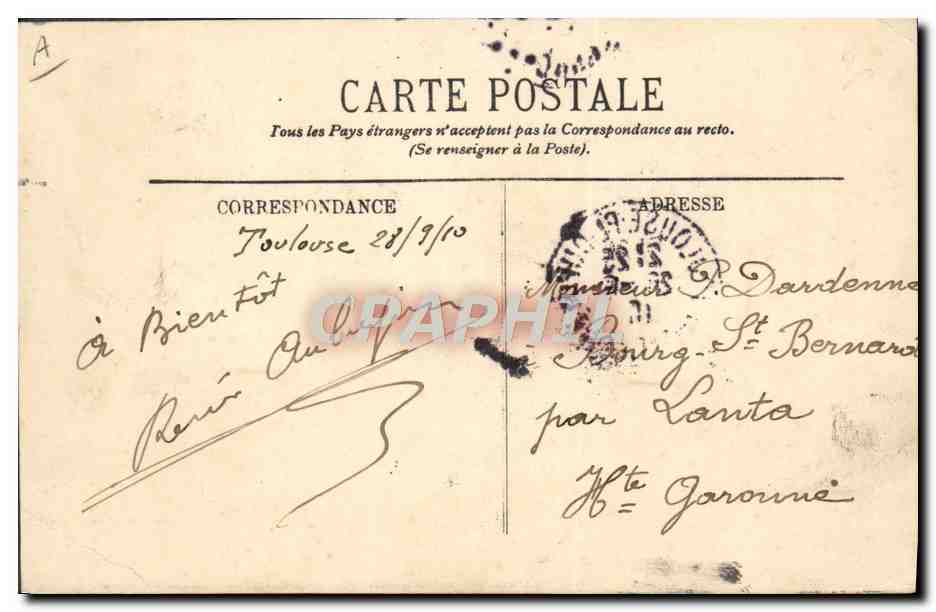 A
CARTE POSTALE
Tous les Pays étrangers n'acceptent pas la Correspondance au recto.
(Se renseigner à la Poste).
CORRESPONDANCE
Toulouse 28/9/10
à Bientôt
René
CPAPHIL
ADRESSE
Monsieur P. Dardenne
Bourg-St Bernard
par Lanta
Hte Garonne